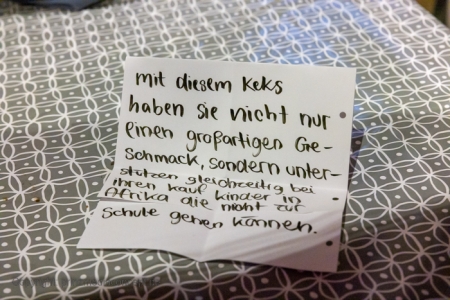 mit diesem Keks
haben sie nicht nur
einen großartigen Ge-
Schmack, sondern unter-
stützen gleichzeitig bei
ihren kauf kinder in
Afrika die nicht zur
Schule gehen können.